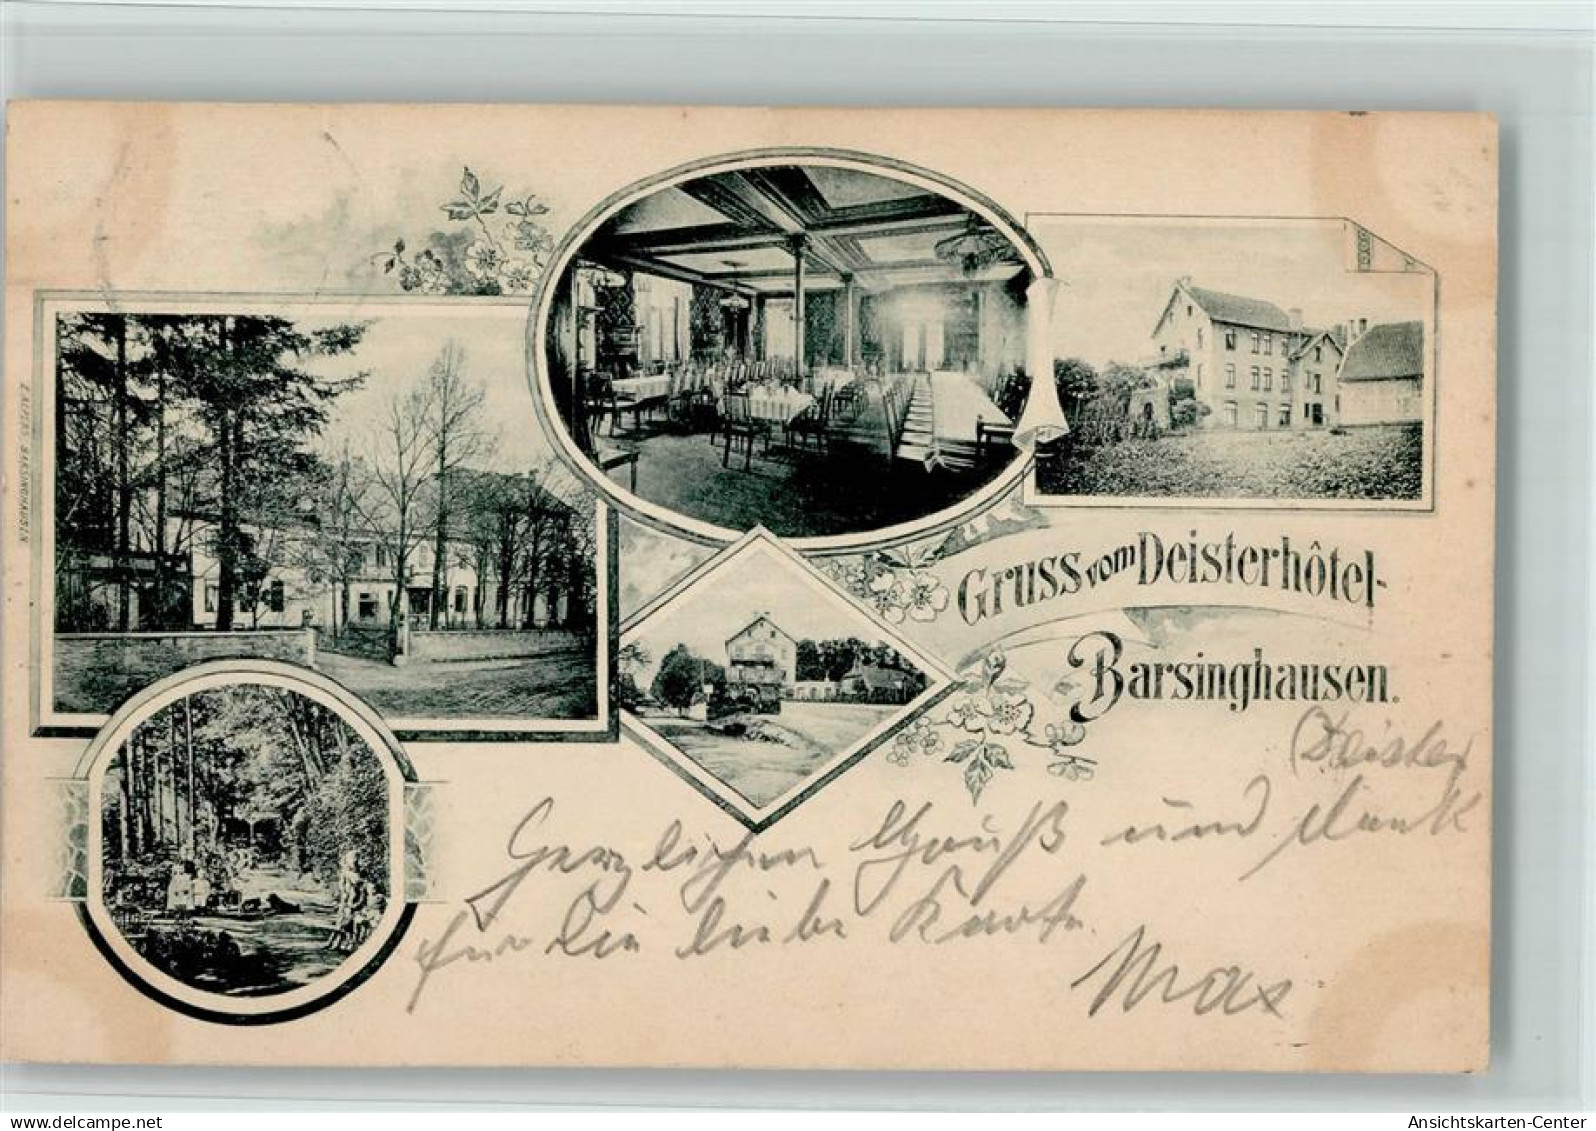 Gruss vom Deisterhôtel-
Barsinghausen.
(Deister)
Herzlichen Gruß und Dank
für die liebe Karte.
Max
oldthing
Ansichtskarten-Center